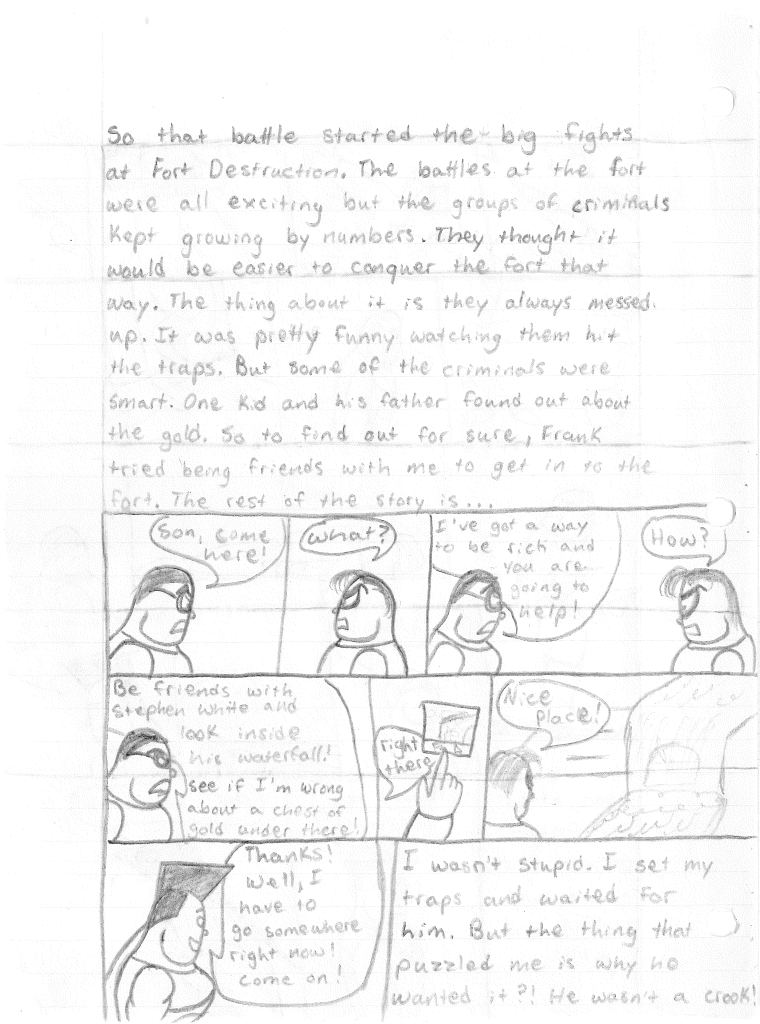 So that battle started the big fights
at Fort Destruction. The battles at the fort
were all exciting but the groups of criminals
kept growing by numbers. They thought it
would be easier to conquer the fort that
way. The thing about it is they always messed
up. It was pretty funny watching them hit
the traps. But some of the criminals were
smart. One kid and his father found out about
the gold. So to find out for sure, Frank
tried being friends with me to get in to the
fort. The rest of the story is...
Son, come
here!
What?
I've got a way
to be rich and
you are
going to
help!
How?
Be friends with
stephen white and
look inside
his waterfall!
see if I'm wrong
about a chest of
gold under there!
right
there
Nice
place!
Thanks!
Well, I
have to
go somewhere
right now!
come on!
I wasn't stupid. I set my
traps and waited for
him. But the thing that
puzzled me is why he
wanted it?! He wasn't a crook!